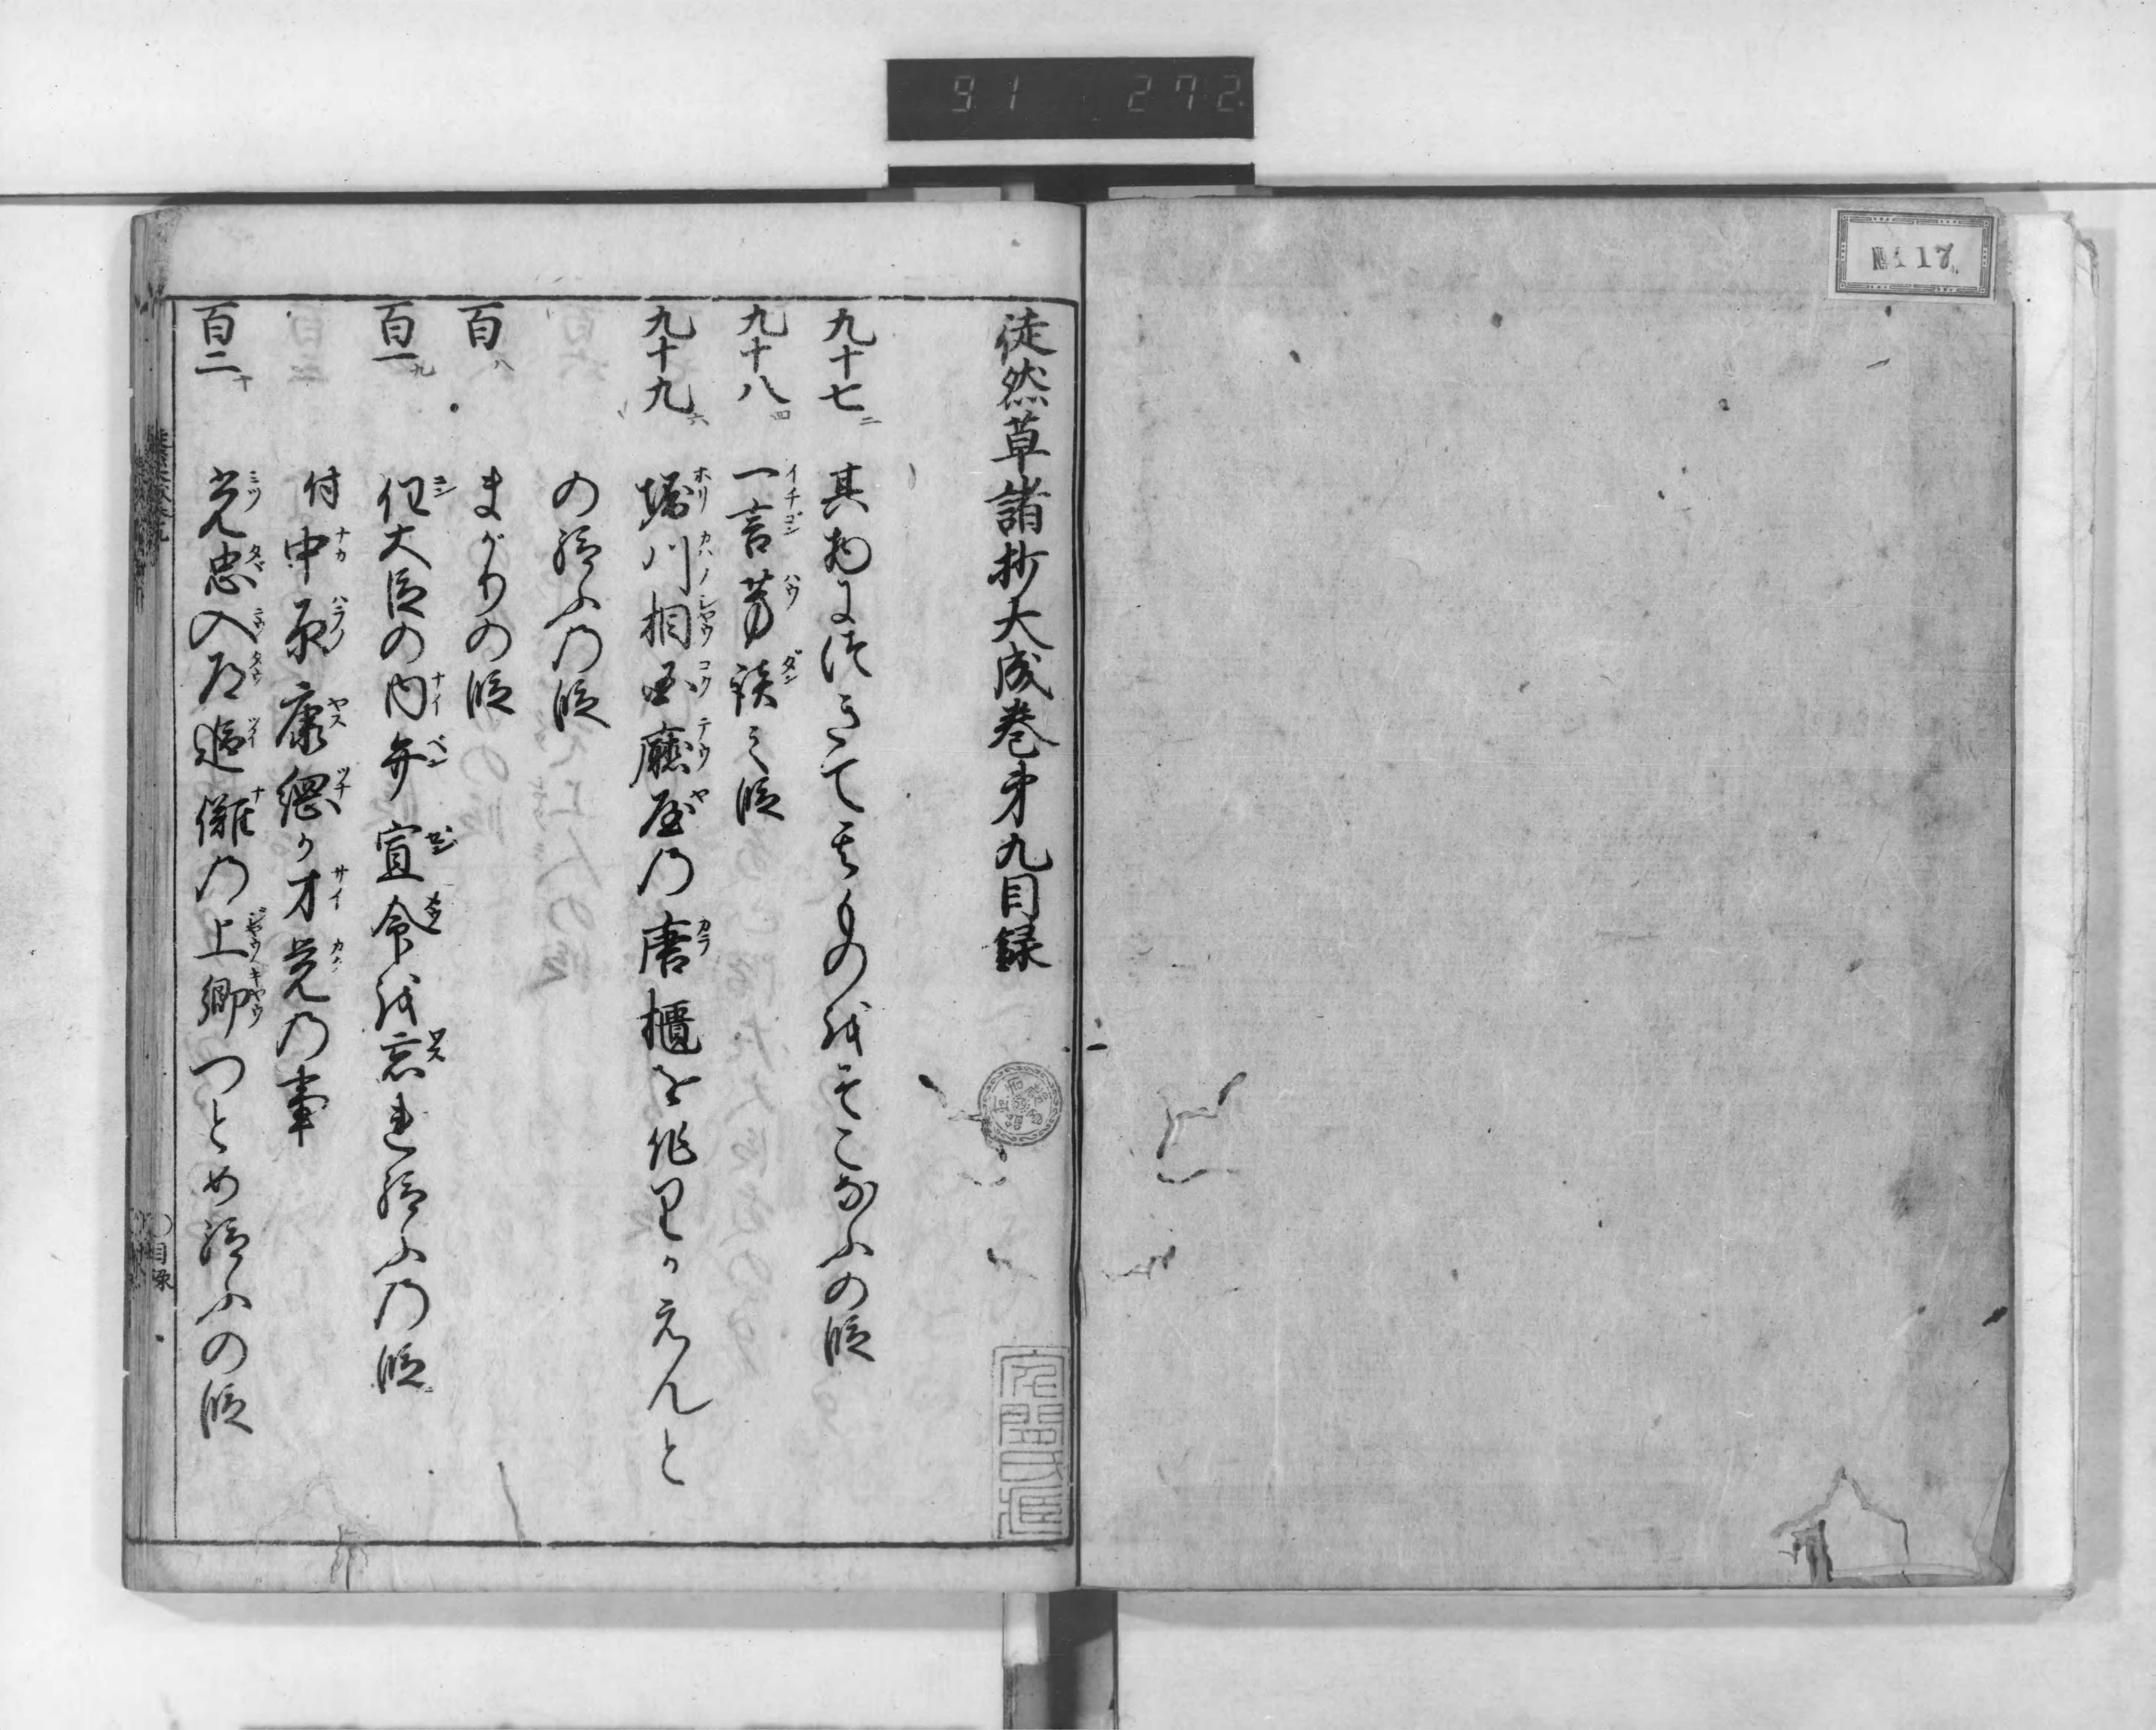 91 272
117
徒然草諸抄大成巻第九目録
九十七二 其物につきて其ものをそこなふの段
九十八四 一言芳談之段
九十九六 堀川相国廳屋の唐櫃を作りかえんと
の給ふの段
百八 まがりの段
百一九 但大臣の内弁宣命を忘れ給ふの段
付中原康綱か才覚の事
百二十 光忠入道追儺の上卿つとめ給ふの段
目录